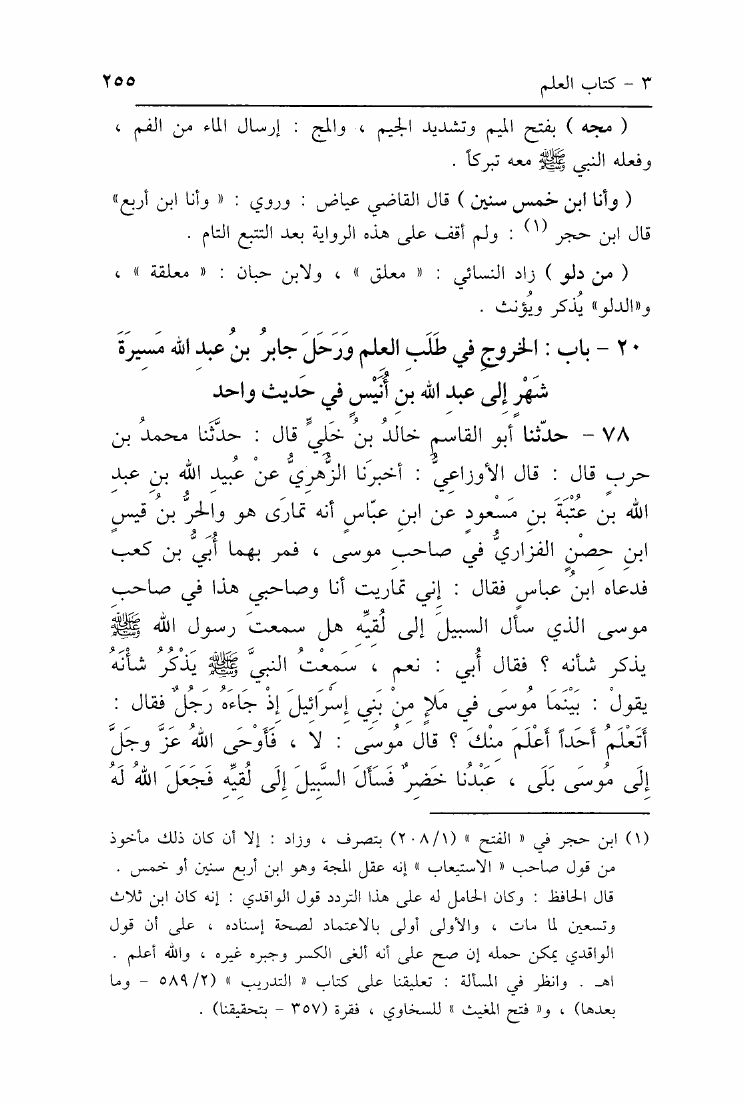 ٣ - كتاب العلم ٢٥٥
( مجه ) بفتح الميم وتشديد الجيم ، والمج : إرسال الماء من الفم ،
وفعله النبي ﷺ معه تبركاً .
( وأنا ابن خمس سنين ) قال القاضي عياض : وروي : « وأنا ابن أربع»
قال ابن حجر (١) : ولم أقف على هذه الرواية بعد التتبع التام .
( من دلو ) زاد النسائي : « معلق » ، ولابن حبان : « معلقة » ،
و«الدلو» يُذكر ويُؤنث .
٢٠ - باب : الخروجِ في طَلَبِ العلم ورَحَلَ جابرُ بنُ عبدِ الله مَسيرَةَ
شَهْرٍ إلى عبدِ الله بنِ أُنَيْسٍ في حَديث واحد
٧٨ - حدّثنا أبو القاسمِ خالدُ بنُ خَليٍّ قال : حدَّثَنا محمدُ بن
حربٍ قال : قال الأوزاعيُّ : أخبرَنا الزُّهرِيُّ عنْ عُبيدِ الله بنِ عبدِ
الله بنِ عُتْبَةَ بنِ مَسْعودٍ عن ابنِ عبّاسٍ أنه تمارَى هو والحرُّ بنُ قيسِ
ابنِ حِصْنٍ الفزاريُّ في صاحبِ موسى ، فمر بهما أُبَيُّ بن كعب
فدعاه ابنُ عباسٍ فقال : إني تماريت أنا وصاحبي هذا في صاحبِ
موسى الذي سأل السبيلَ إلى لُقيِّه هل سمعتَ رسول الله ﷺ
يذكر شأنه ؟ فقال أُبي : نعم ، سَمِعْتُ النبيَّ ﷺ يَذْكُرُ شأنَهُ
يقولُ : بَيْنَمَا مُوسَى في مَلاٍ مِنْ بَنِي إسْرَائِيلَ إذْ جَاءَهُ رَجُلٌ فقال :
أَتَعْلَمُ أَحَداً أَعْلَمَ مِنْكَ ؟ قال مُوسَى : لا ، فَأَوْحَى اللهُ عَزَّ وجَلَّ
إلَى مُوسَى بَلَى ، عَبْدُنا خَضِرٌ فَسأَلَ السَّبِيلَ إلَى لُقيِّهِ فَجَعَلَ اللهُ لَهُ
(١) ابن حجر في « الفتح » (٢٠٨/١) بتصرف ، وزاد : إلا أن كان ذلك مأخوذ
من قول صاحب « الاستيعاب » إنه عقل المجة وهو ابن أربع سنين أو خمس .
قال الحافظ : وكان الحامل له على هذا التردد قول الواقدي : إنه كان ابن ثلاث
وتسعين لما مات ، والأولى أولى بالاعتماد لصحة إسناده ، على أن قول
الواقدي يمكن حمله إن صح على أنه ألغى الكسر وجبره غيره ، والله أعلم .
اهـ . وانظر في المسألة : تعليقنا على كتاب « التدريب » (٥٨٩/٢ - وما
بعدها) ، و« فتح المغيث » للسخاوي ، فقرة (٣٥٧ - بتحقيقنا) .